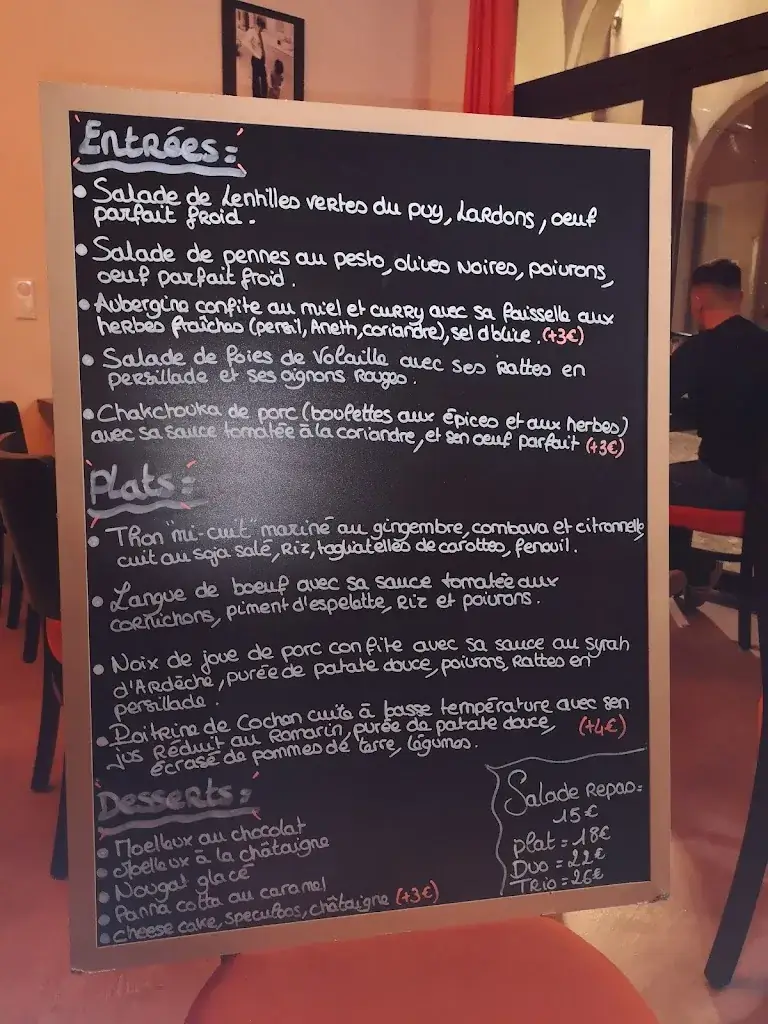 Entrées:
• Salade de Lentilles vertes du puy, Lardons, oeuf
parfait froid.
• Salade de pennes au pesto, olives noires, poivrons,
oeuf parfait froid.
• Aubergine confite au miel et curry avec sa faisselle aux
herbes fraîches (persil, Aneth, coriandre), sel d'olive. (+3€)
• Salade de foies de Volaille avec ses Rattes en
persillade et ses oignons Rouges.
• Chakchouka de porc (boulettes aux épices et aux herbes)
avec sa sauce tomatée à la coriandre, et son oeuf parfait (+3€)
Plats:
• Thon "mi-cuit" mariné au gingembre, combava et citronnelle
cuit au soja salé, Riz, tagliatelles de carottes, fenouil.
• Langue de boeuf avec sa sauce tomatée aux
cornichons, piment d'espelette, Riz et poivrons.
• Noix de joue de porc confite avec sa sauce au Syrah
d'Ardèche, purée de patate douce, poivrons, Rattes en
persillade.
• Poitrine de Cochon cuite à basse température avec son
jus Réduit au Romarin, purée de patate douce, (+4€)
écrasé de pommes de terre, légumes.
Desserts:
• Moelleux au chocolat
• Moelleux à la châtaigne
• Nougat glacé
• Panna cotta au caramel
• cheese cake, speculoos, châtaigne (+3€)
Salade Repas:
15€
plat = 18€
Duo = 22€
Trio = 26€